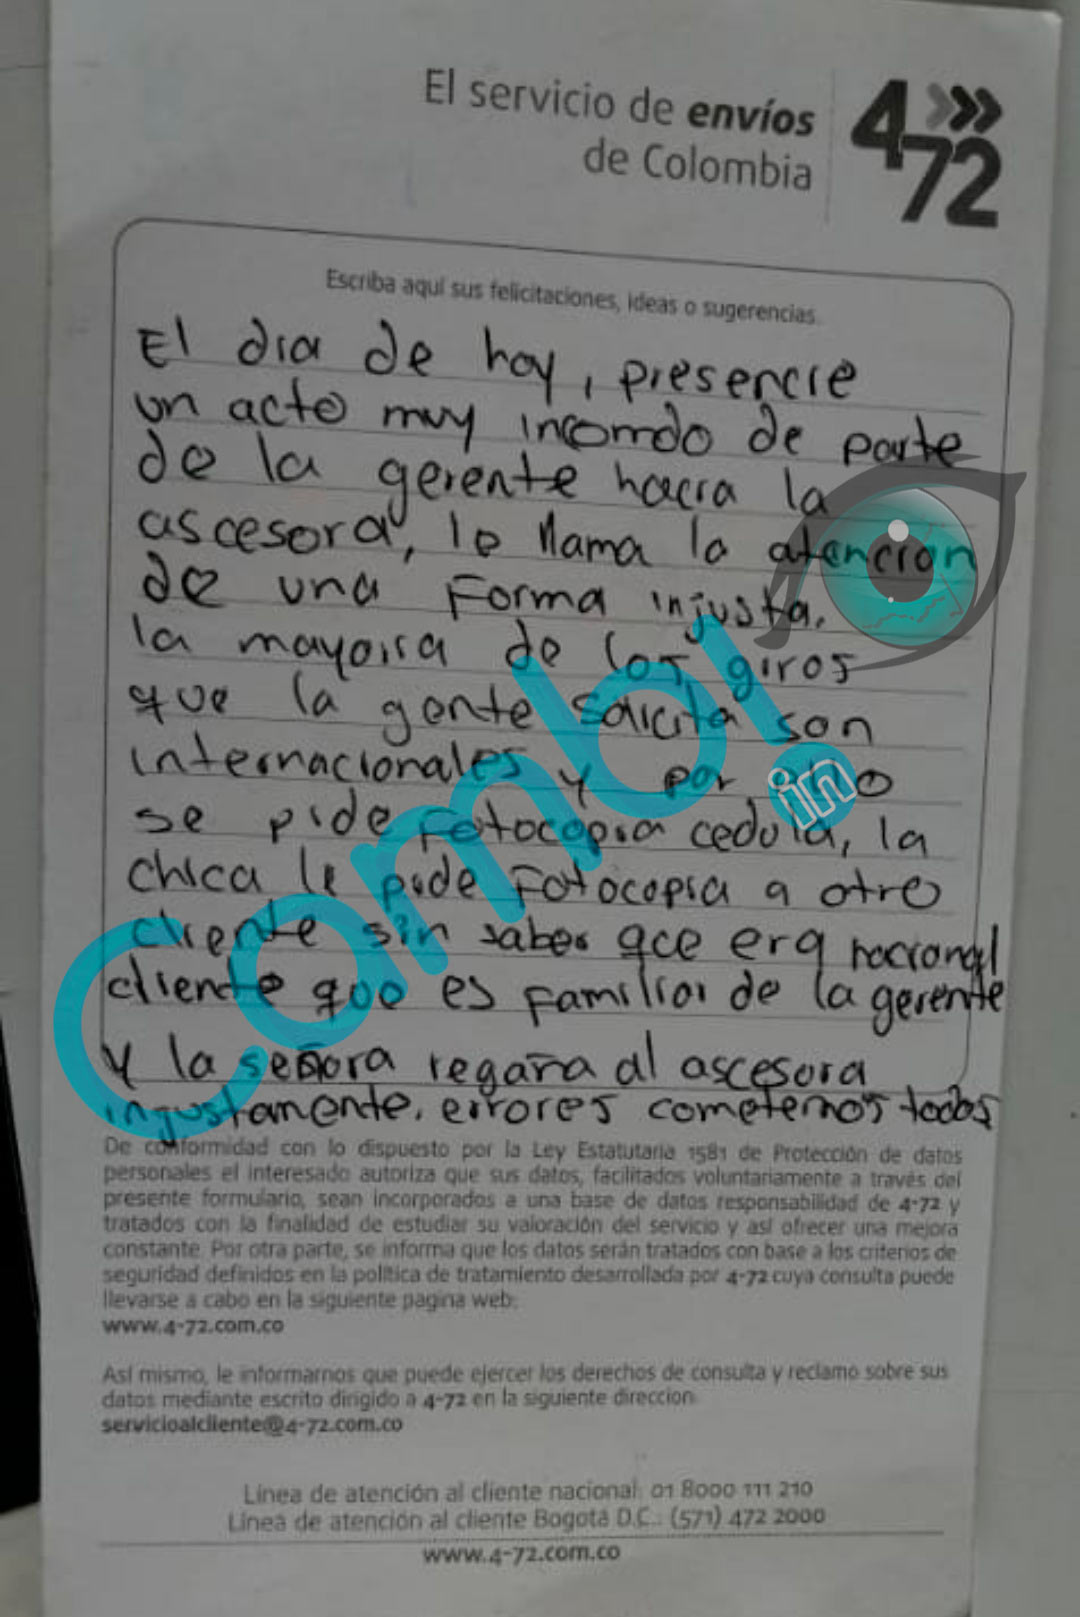 El servicio de envíos
de Colombia
4-72
Escriba aquí sus felicitaciones, ideas o sugerencias.
El dia de hoy, presencie
un acto muy incomodo de parte
de la gerente hacia la
ascesora, le llama la atencion
de una Forma injusta.
la mayoria de los giros
que la gente solicita son
internacionales y por
se pide Fotocopia cedula, la
chica le pide Fotocopia a otro
cliente sin saber que era nacional
cliente que es familiar de la gerente
y la señora regaña al ascesora
injustamente. errores cometemos todos
De conformidad con lo dispuesto por la Ley Estatutaria 1581 de Protección de datos
personales el interesado autoriza que sus datos, facilitados voluntariamente a través del
presente formulario, sean incorporados a una base de datos responsabilidad de 4-72 y
tratados con la finalidad de estudiar su valoración del servicio y así ofrecer una mejora
constante. Por otra parte, se informa que los datos serán tratados con base a los criterios de
seguridad definidos en la política de tratamiento desarrollada por 4-72 cuya consulta puede
llevarse a cabo en la siguiente pagina web:
www.4-72.com.co
Así mismo, le informamos que puede ejercer los derechos de consulta y reclamo sobre sus
datos mediante escrito dirigido a 4-72 en la siguiente direccion:
servicioalcliente@4-72.com.co
Línea de atención al cliente nacional: 01 8000 111 210
Línea de atención al cliente Bogotá D.C.: (571) 472 2000
www.4-72.com.co
Comb!
in